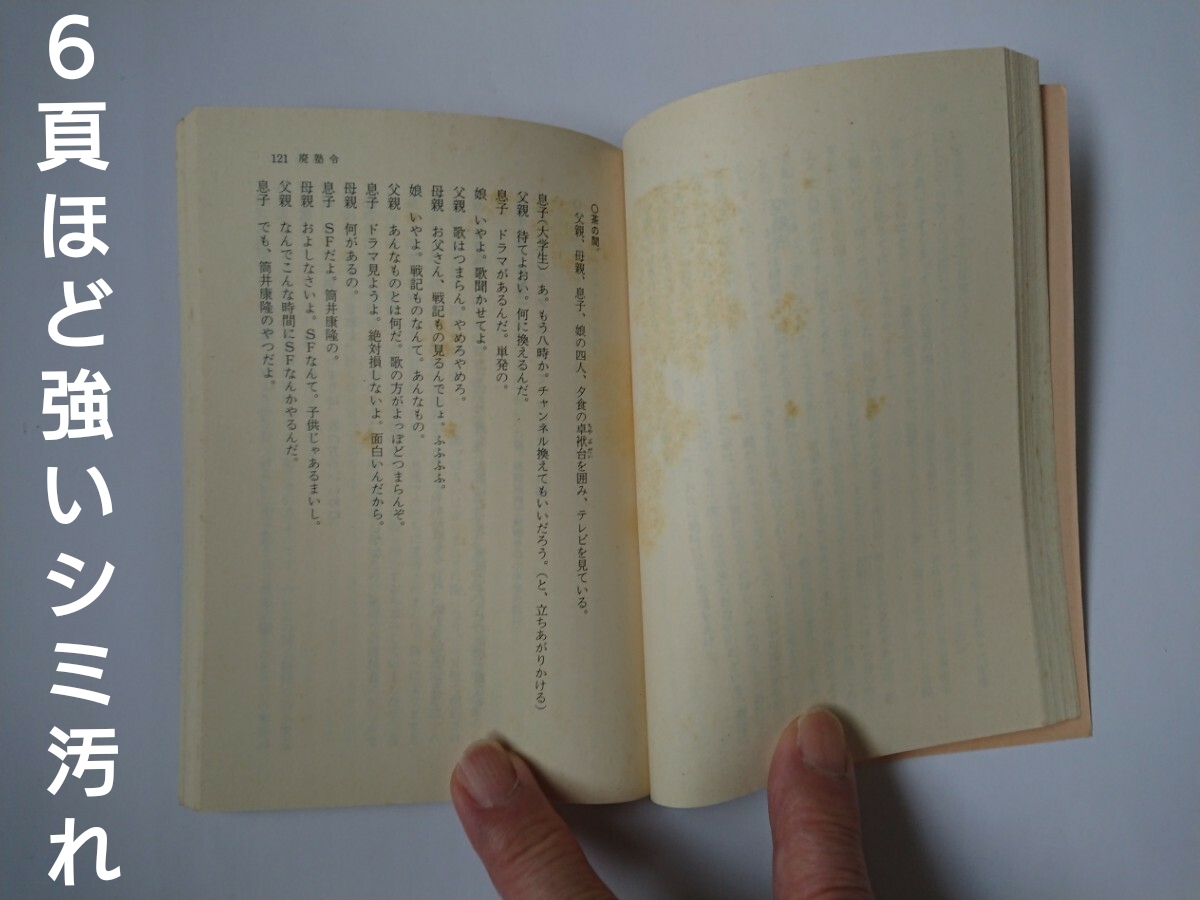 6頁ほど強いシミ汚れ
121 廃塾令
○茶の間。
父親、母親、息子、娘の四人、夕食の卓袱台を囲み、テレビを見ている。
息子(大学生) あ。もう八時か。チャンネル換えてもいいだろう。(と、立ちあがりかける)
父親 待てよおい。何に換えるんだ。
息子 ドラマがあるんだ。単発の。
娘 いやよ。歌聞かせてよ。
父親 歌はつまらん。やめろやめろ。
母親 お父さん、戦記もの見るんでしょ。ふふふふ。
娘 いやよ。戦記ものなんて。あんなもの。
父親 あんなものとは何だ。歌の方がよっぽどつまらんぞ。
息子 ドラマ見ようよ。絶対損しないよ。面白いんだから。
母親 何があるの。
息子 SFだよ。筒井康隆の。
母親 およしなさいよ。SFなんて。子供じゃあるまいし。
父親 なんでこんな時間にSFなんかやるんだ。
息子 でも、筒井康隆のやつだよ。